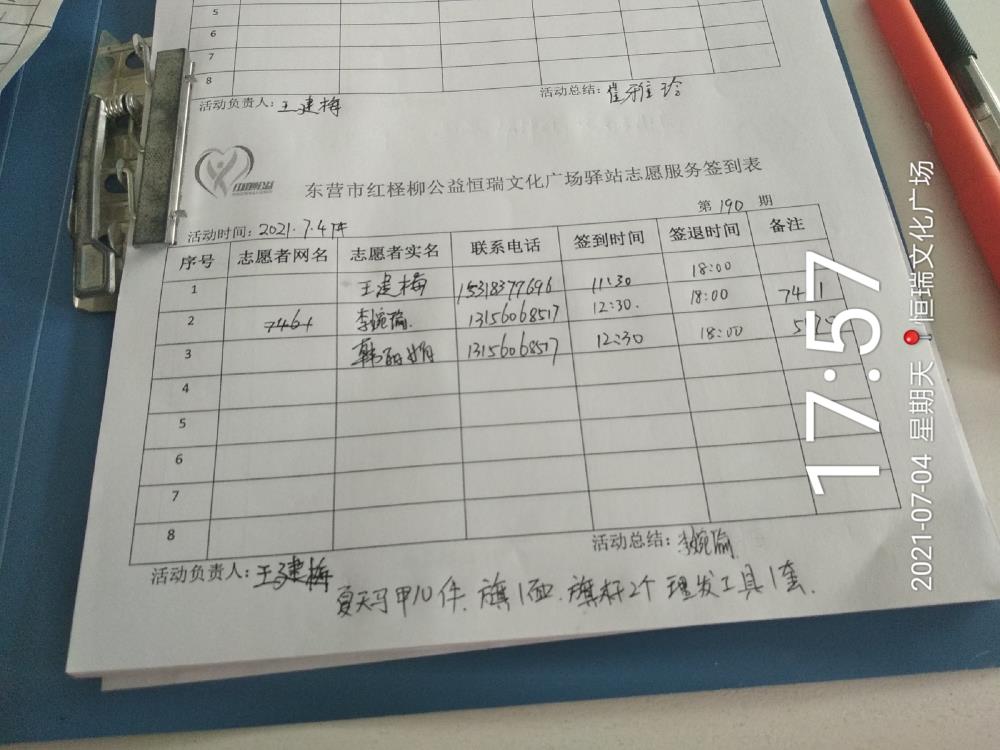 5
6
7
8
活动负责人：王建梅 活动总结：崔雅玲
东营市红柽柳公益恒瑞文化广场驿站志愿服务签到表
第 190 期
活动时间：2021.7.4
序号 志愿者网名 志愿者实名 联系电话 签到时间 签退时间 备注
1 王建梅 15318377696 11:30 18:00
2 李婉瑜. 13156068517 12:30. 18:00
3 13156068517 12:30 18:00
4
5
6
7
8
活动负责人：王建梅 活动总结：李婉瑜
夏天马甲10件、旗1面、旗杆2个 理发工具1套.
17:57
2021-07-04 星期天 恒瑞文化广场